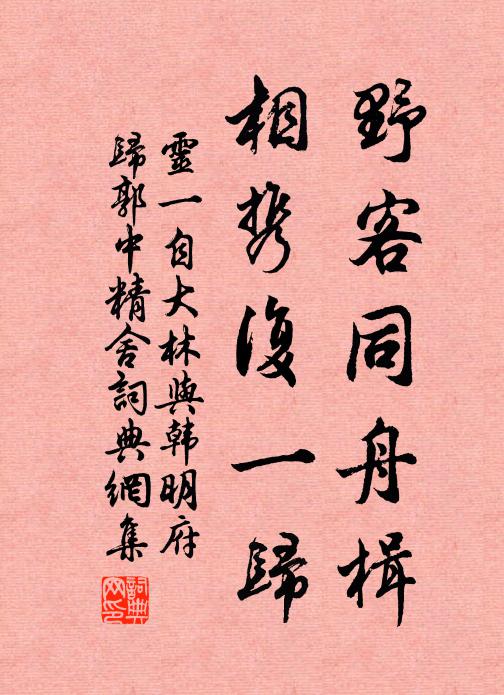 野客同舟楫
相携復一歸
靈一自大林與韓明府
歸郭中精舍詞典網集
詞典
网印